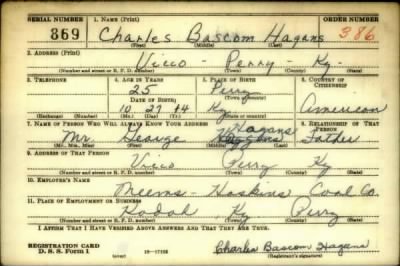 SERIAL NUMBER 1. NAME (Print) ORDER NUMBER
869 Charles Bascom Hagans 386
(First) (Middle) (Last)
2. ADDRESS (Print)
Vicco - Perry - Ky -
(Number and street or R. F. D. number) (Town) (County) (State)
3. TELEPHONE 4. AGE IN YEARS 5. PLACE OF BIRTH 6. COUNTRY OF CITIZENSHIP
25 Perry
DATE OF BIRTH (Town or county)
10 27 14 Ky American
(Exchange) (Number) (Mo.) (Day) (Yr.) (State or country)
7. NAME OF PERSON WHO WILL ALWAYS KNOW YOUR ADDRESS 8. RELATIONSHIP OF THAT PERSON
Hagans
Mr George Father
(Mr., Mrs., Miss) (First) (Middle) (Last)
9. ADDRESS OF THAT PERSON
Vicco Perry Ky
(Number and street or R. F. D. number) (Town) (County) (State)
10. EMPLOYER'S NAME
Haskins Coal Co.
11. PLACE OF EMPLOYMENT OR BUSINESS
Kodak Ky Perry
(Number and street or R. F. D. number) (Town) (County) (State)
I AFFIRM THAT I HAVE VERIFIED ABOVE ANSWERS AND THAT THEY ARE TRUE.
REGISTRATION CARD
D. S. S. Form 1 (over) Charles Bascom Hagans
(Registrant's signature)